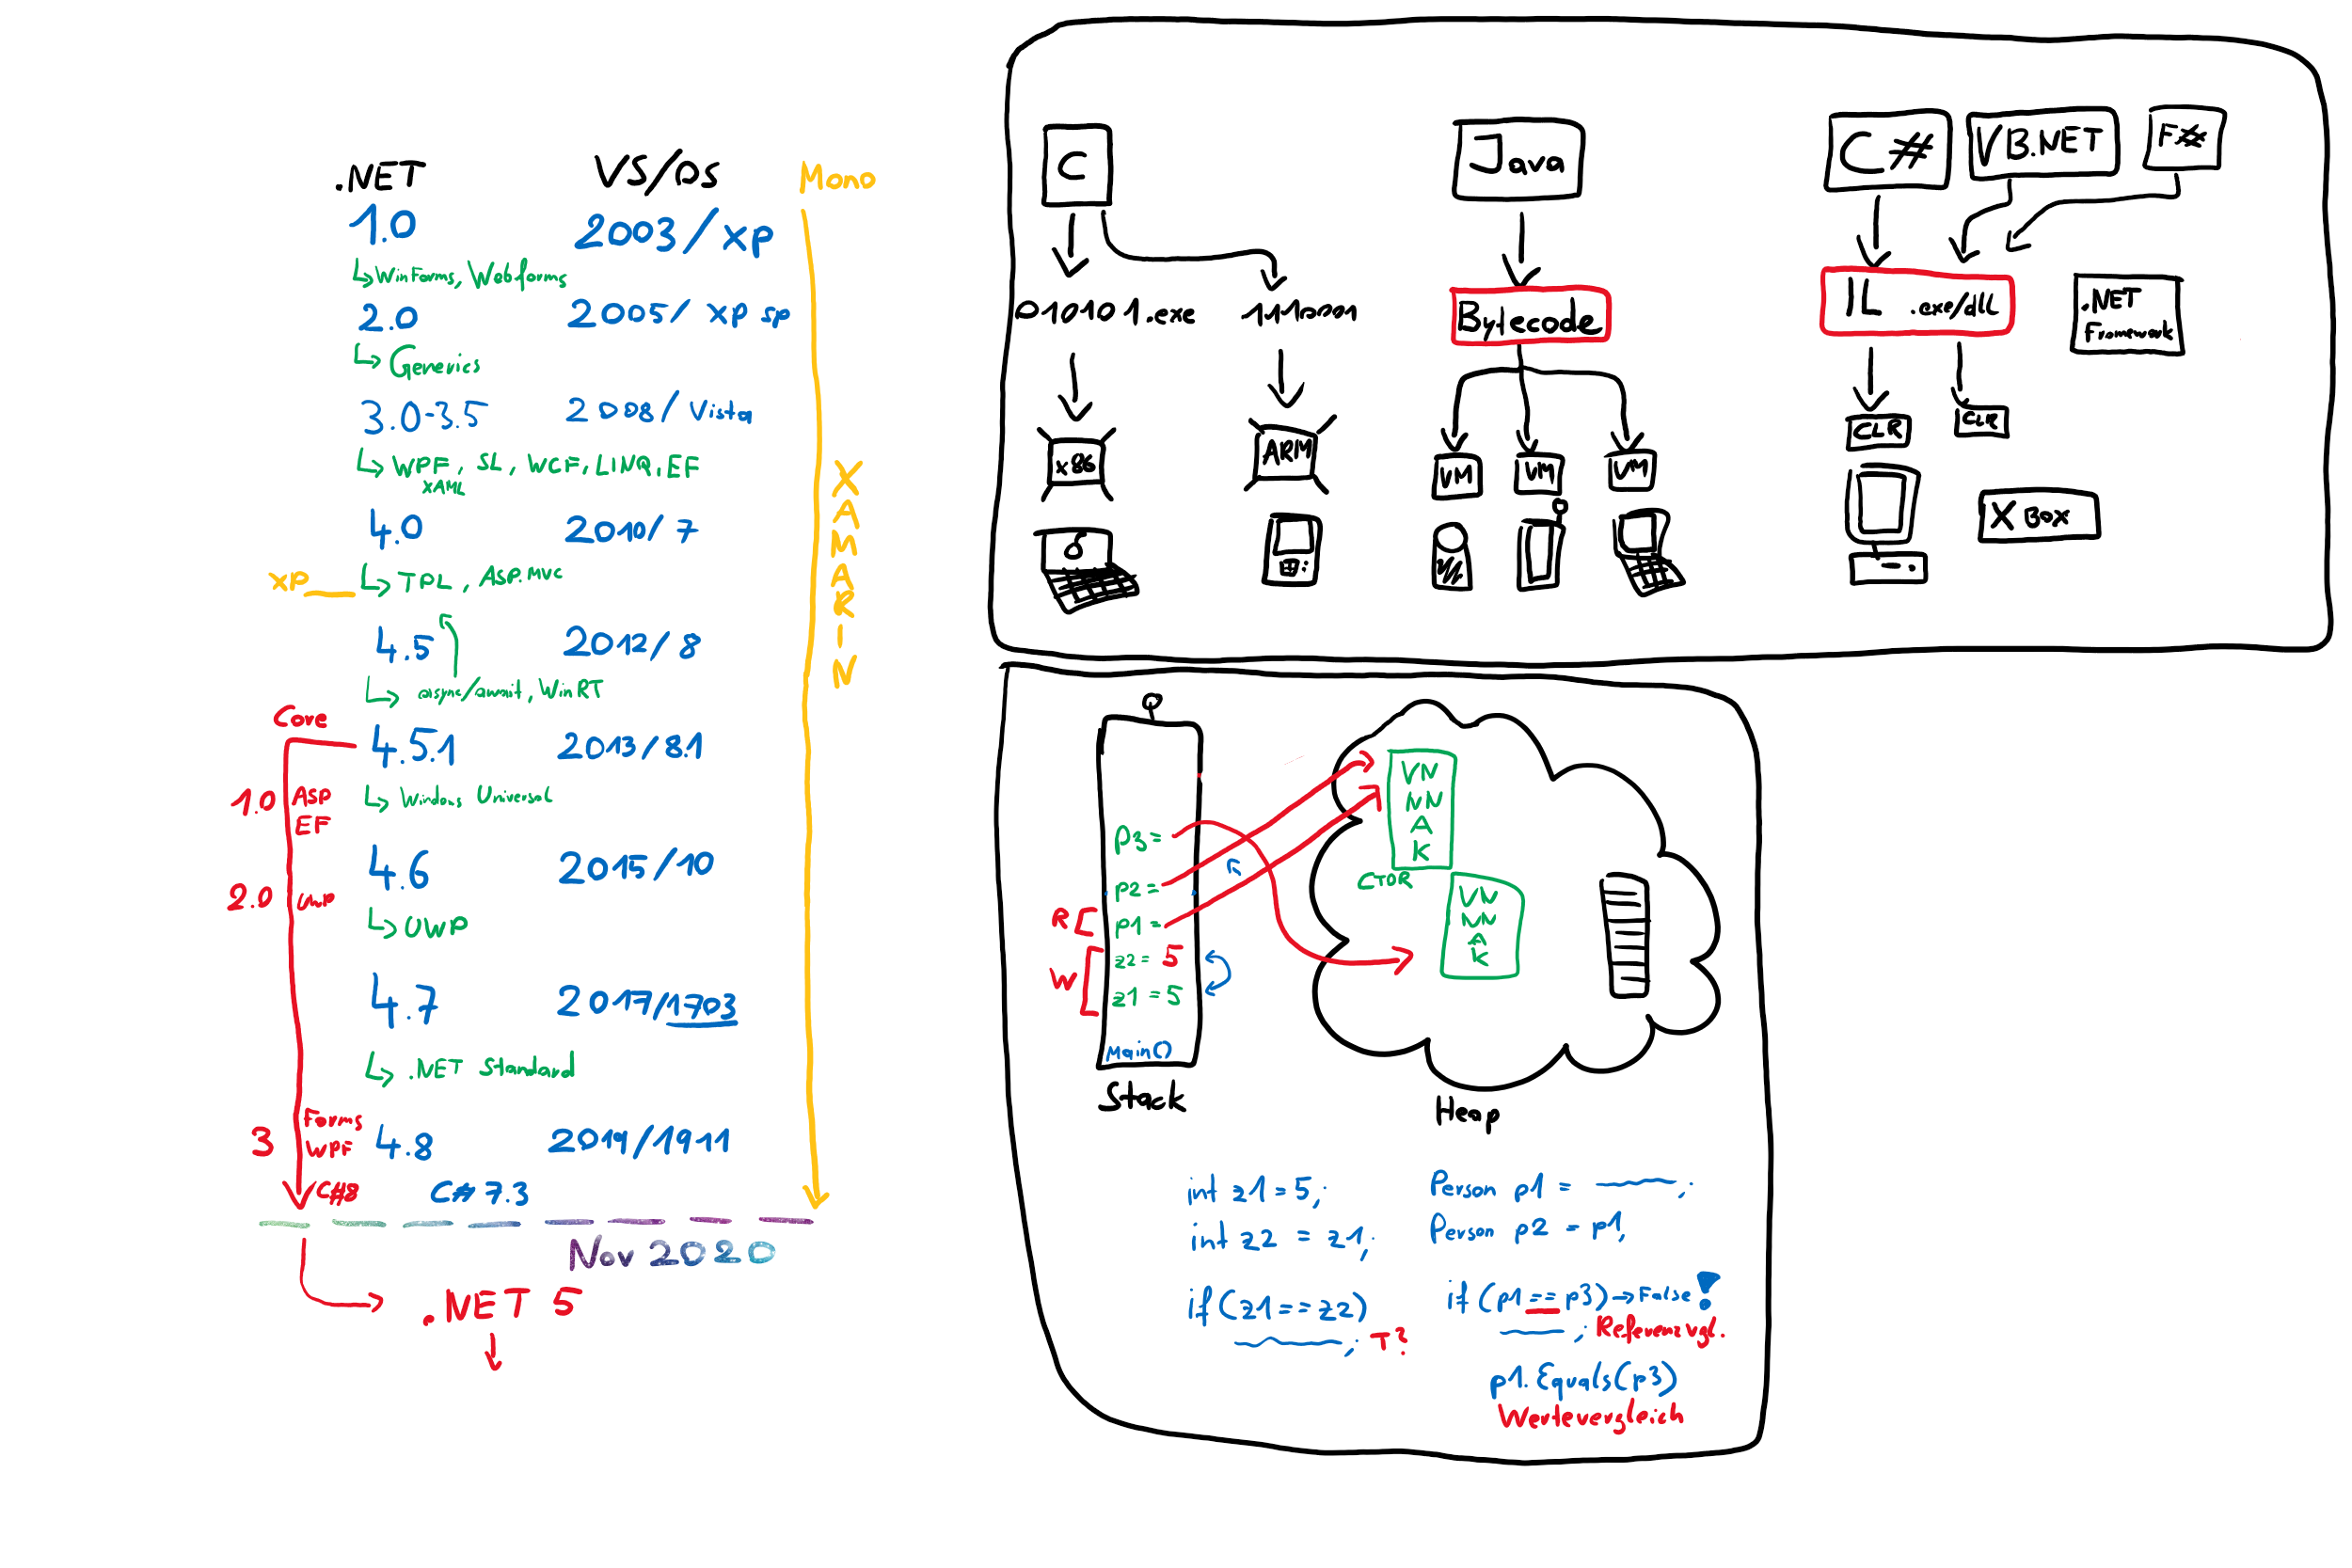 .NET VS/OS Mono
1.0 2003/XP
WinForms, Webforms
2.0 2005/ XP SP
Generics
3.0-3.5 2008/Vista
WPF, SL, WCF, LINQ, EF
XAML
4.0 2010/7
XP TPL, ASP.MVC
4.5 2012/8
async/await, WinRT
XAMARIN
Core
4.5.1 2013/8.1
1.0 ASP
EF
Windows Universal
4.6 2015/10
2.0 UWP
UWP
4.7 2017/1703
.NET Standard
3 Forms
WPF
4.8 2019/1911
C#8 C# 7.3
Nov 2020
.NET 5
C
010101.exe 1110001
x86 ARM
Java
Bytecode
VM VM VM
C# VB.NET F#
IL .exe/dll
.NET
Framework
CLR CLR
XBOX
p3=
p2=
R p1=
W z2= 5
z1=5
Main()
Stack
VN
NN
A
K
CTOR
VN
NN
A
K
Heap
int z1=5;
int z2 = z1;
if(z1==z2)
; T?
Person p1 = ;
Person p2 = p1;
if(p1==p3)→False!
; Referenzvgl.
p1.Equals(p3)
Wertevergleich